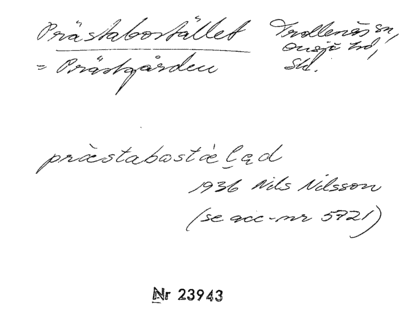 Prästabostället Trollenäs sn,
= Prästgården Onsjö hd,
Sk.
præstabostæḷad
1936 Nils Nilsson
(se acc-nr 5721)
Nr 23943